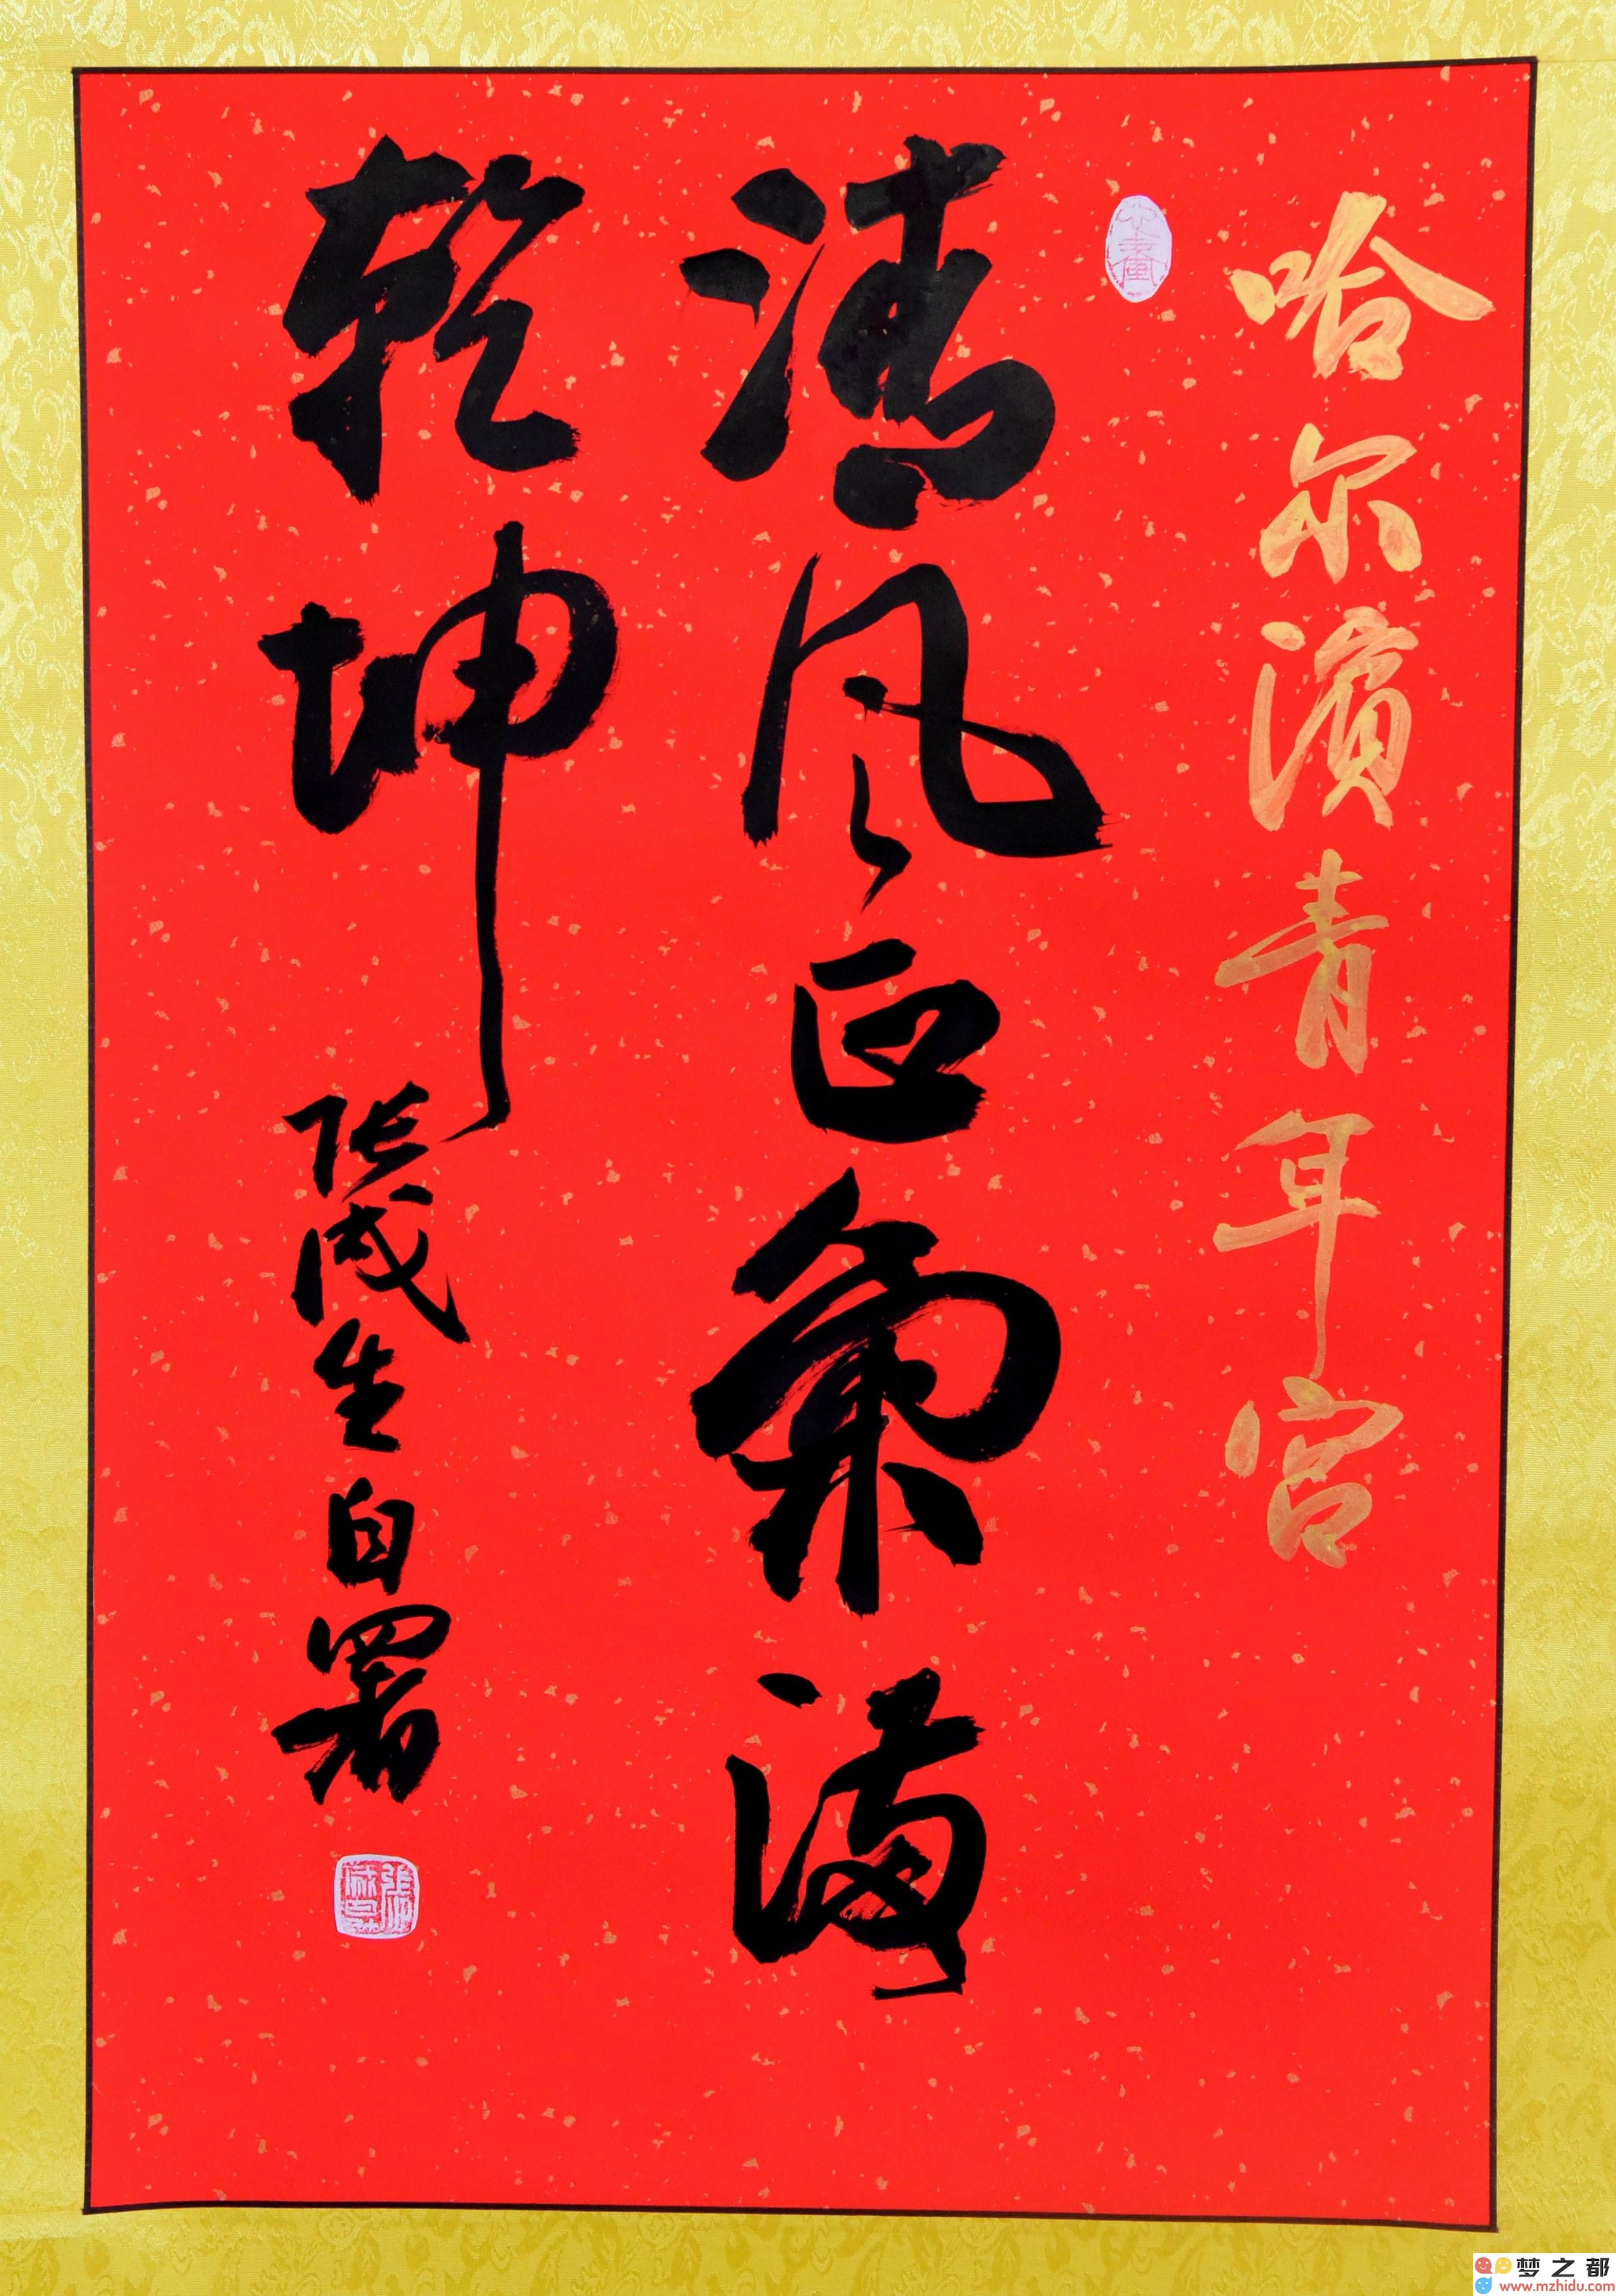 哈尔濱青年宫
清风正氣满
乾坤
张成生自署
梦之都
www.mzhidu.com